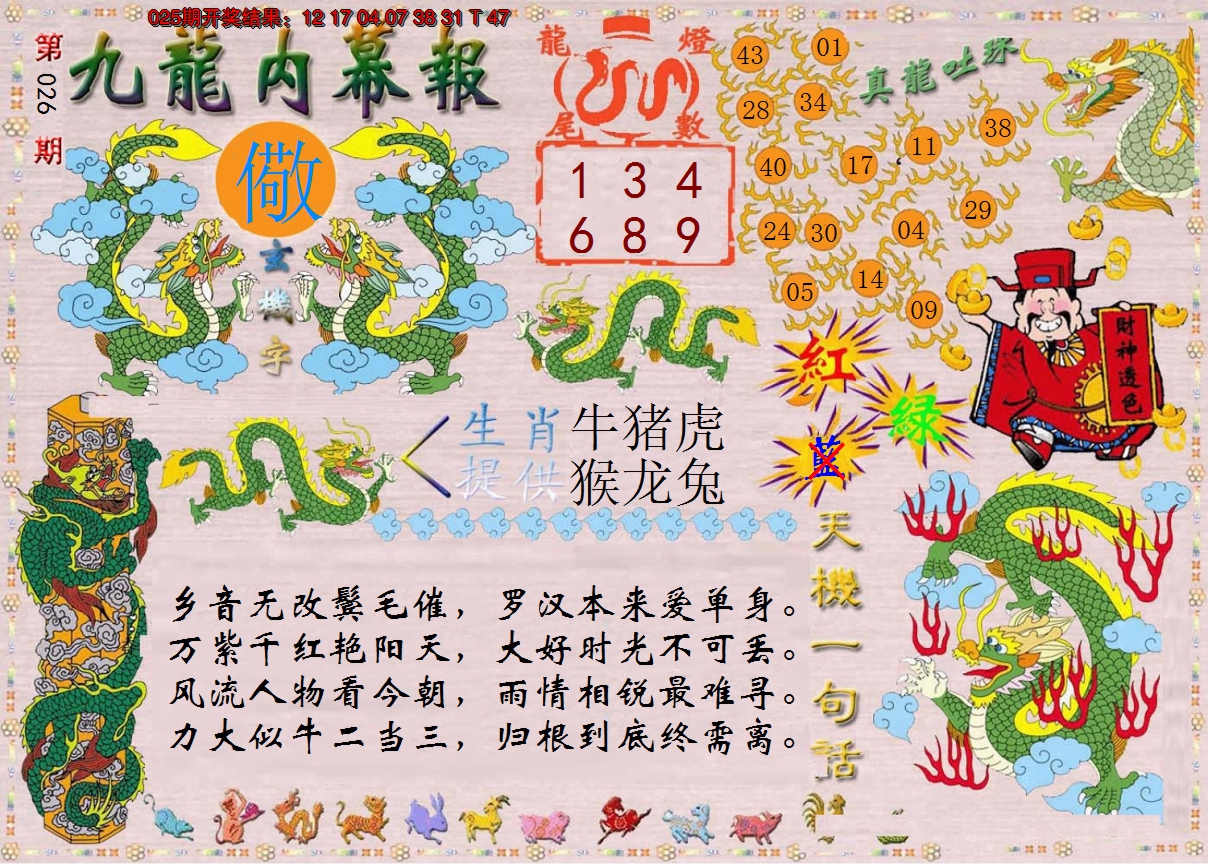 025期开奖结果：12 17 04 07 38 31 T 47
第026期
九龍内幕報
儆
玄機字
龍燈尾數
1 3 4
6 8 9
真龍吐珠
43 01
28 34
11 38
40 17
29
24 30 04
05 14
09
財神透色
紅
綠
藍
生肖提供
牛猪虎
猴龙兔
乡音无改鬓毛催，罗汉本来爱单身。
万紫千红艳阳天，大好时光不可丢。
风流人物看今朝，雨情相锐最难寻。
力大似牛二当三，归根到底终需离。
天機一句話